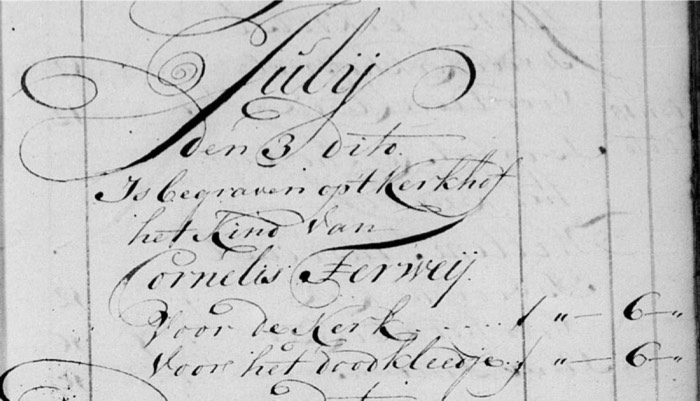 Julij
den 3 dito
Is begraven op't Kerkhof
het Kind van
Cornelis Zerweij.
Voor de Kerk ...... f „ — 6 — „
Voor het doodkleedje f „ — 6 — „